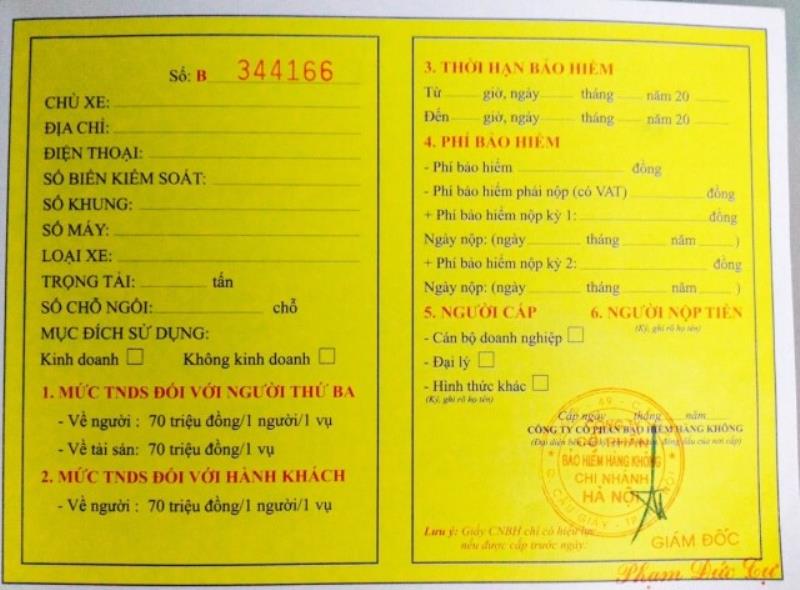 Số: B 344166
CHỦ XE:
ĐỊA CHỈ:
ĐIỆN THOẠI:
SỐ BIỂN KIỂM SOÁT:
SỐ KHUNG:
SỐ MÁY:
LOẠI XE:
TRỌNG TẢI: tấn
SỐ CHỖ NGỒI: chỗ
MỤC ĐÍCH SỬ DỤNG:
Kinh doanh Không kinh doanh
1. MỨC TNDS ĐỐI VỚI NGƯỜI THỨ BA
- Về người : 70 triệu đồng/1 người/1 vụ
- Về tài sản: 70 triệu đồng/1 vụ
2. MỨC TNDS ĐỐI VỚI HÀNH KHÁCH
- Về người : 70 triệu đồng/1 người/1 vụ
3. THỜI HẠN BẢO HIỂM
Từ giờ, ngày tháng năm 20
Đến giờ, ngày tháng năm 20
4. PHÍ BẢO HIỂM
- Phí bảo hiểm đồng
- Phí bảo hiểm phải nộp (có VAT) đồng
+ Phí bảo hiểm nộp kỳ 1: đồng
Ngày nộp: (ngày tháng năm )
+ Phí bảo hiểm nộp kỳ 2: đồng
Ngày nộp: (ngày tháng năm )
5. NGƯỜI CẤP 6. NGƯỜI NỘP TIỀN
(Ký, ghi rõ họ tên)
- Cán bộ doanh nghiệp
- Đại lý
- Hình thức khác
(Ký, ghi rõ họ tên)
Cấp ngày tháng năm
CÔNG TY CỔ PHẦN BẢO HIỂM HÀNG KHÔNG
(Đại diện đóng dấu của nơi cấp)
CÔNG TY
CỔ PHẦN
BẢO HIỂM HÀNG KHÔNG
CHI NHÁNH
HÀ NỘI
Q. CẦU GIẤY - TP HÀ NỘI
Lưu ý: Giấy CNBH chỉ có hiệu lực
nếu được cấp trước ngày:
GIÁM ĐỐC
Phạm Đức Tục